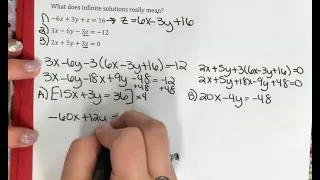 What does infinite solutions really mean?
1) −6x + 3y + z = 16 → z = 6x - 3y + 16
2) 3x − 6y − 3z = −12
3) 2x + 5y + 3z = 0
3x - 6y - 3(6x - 3y + 16) = -12
3x - 6y - 18x + 9y - 48 = -12
+48 +48
A) [-15x + 3y = 36] × 4
-60x + 12y =
2x + 5y + 3(6x - 3y + 16) = 0
2x + 5y + 18x - 9y + 48 = 0
B) 20x - 4y = -48